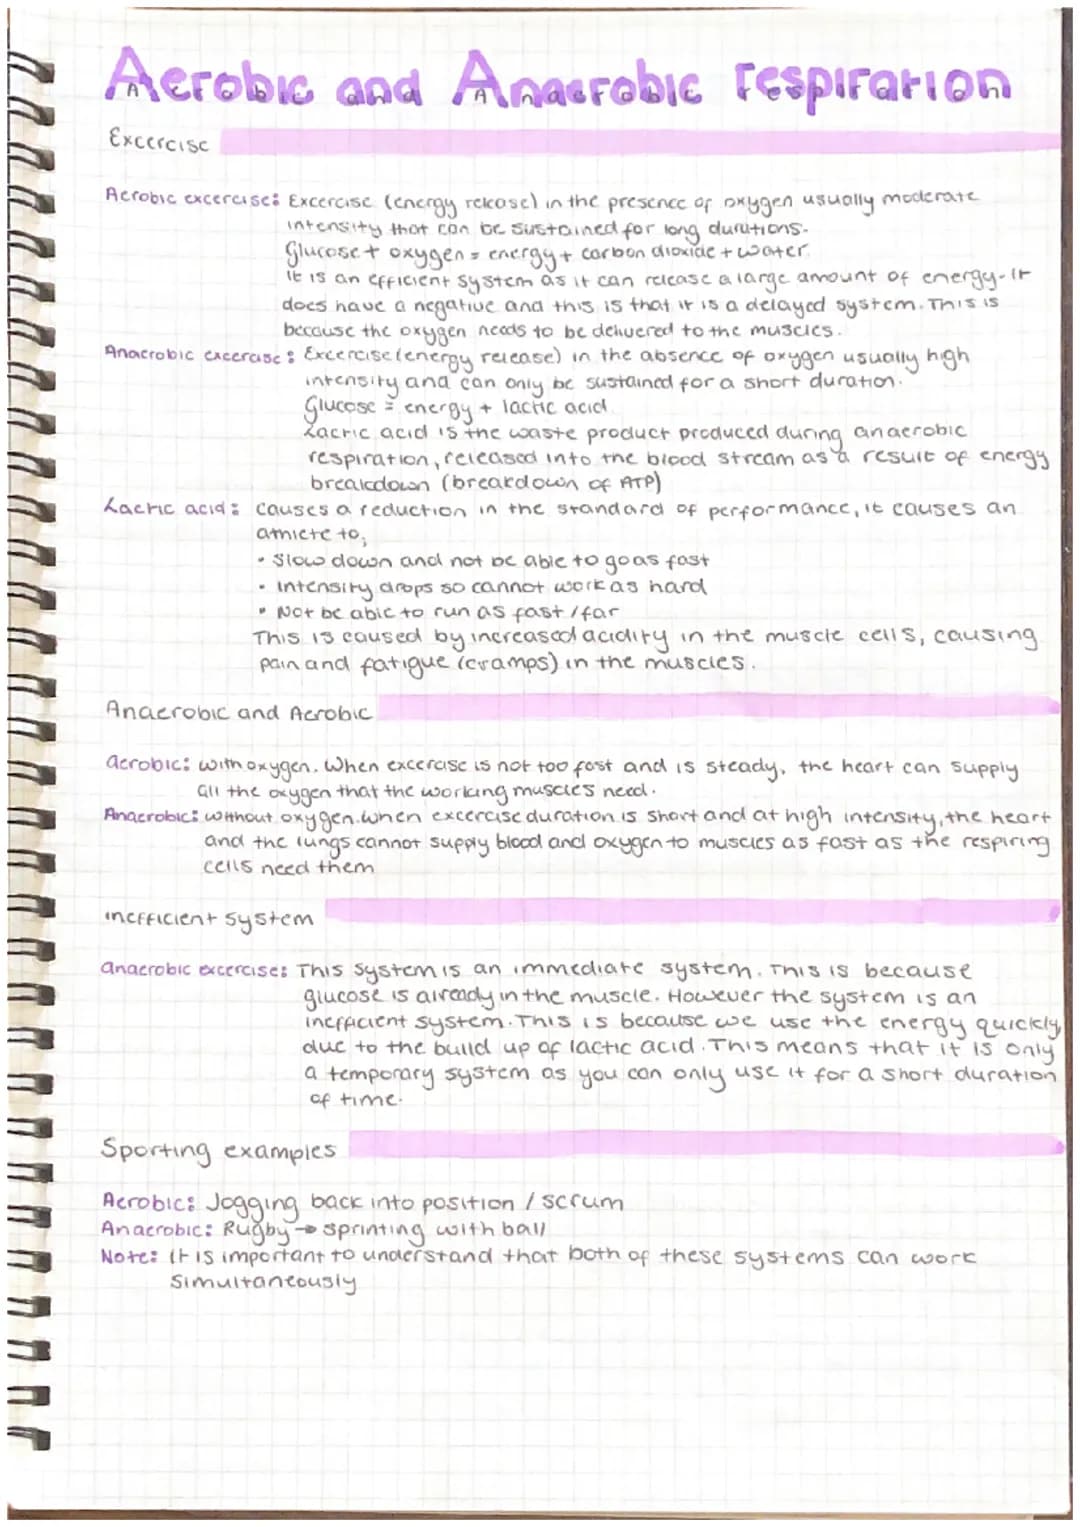 Aerobic and Anaerobic respiration
Excercise
Aerobic excercise: Excercise (energy release) in the presence of oxygen usually moderate
intensity that can be sustained for long durations.
Glucose + oxygen = energy + carbon dioxide + water.
It is an efficient system as it can release a large amount of energy. It
does have a negative and this is that it is a delayed system. This is
because the oxygen needs to be delivered to the muscles.
Anaerobic excercise: Excercise (energy release) in the absence of oxygen usually high
intensity and can only be sustained for a short duration.
Glucose = energy + lactic acid.
Lactic acid is the waste product produced during anaerobic
respiration, released into the blood stream as a result of energy
breakdown (breakdown of ATP)
Lactic acid: causes a reduction in the standard of performance, it causes an
amlete to;
• Slow down and not be able to go as fast
• Intensity drops so cannot work as hard
• Not be able to run as fast / far
This is caused by increased acidity in the muscle cells, causing
pain and fatigue (cramps) in the muscles.
Anaerobic and Aerobic
aerobic: with oxygen. When excercise is not too fast and is steady, the heart can supply
all the oxygen that the working muscles need.
Anaerobic: without oxygen. When excercise duration is short and at high intensity, the heart
and the lungs cannot supply blood and oxygen to muscles as fast as the respiring
cells need them
inefficient system
anaerobic excercise: This system is an immediate system. This is because
glucose is already in the muscle. However the system is an
inefficient system. This is because we use the energy quickly
due to the build up of lactic acid. This means that it is only
a temporary system as you can only use it for a short duration
of time.
Sporting examples
Aerobic: Jogging back into position / scrum
Anaerobic: Rugby → sprinting with ball
Note: It is important to understand that both of these systems can work
simultaneously